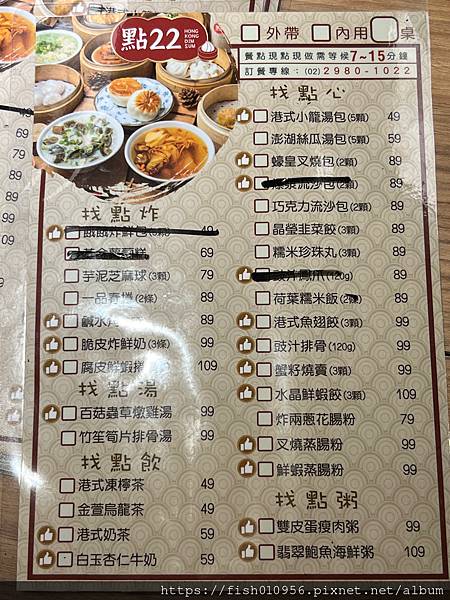 點22
HONG KONG DIM SUM
外帶 內用 桌
餐點現點現做需等候7~15分鐘
訂餐專線：(02) 2980-1022
找點心
港式小籠湯包(5顆) 49
澎湖絲瓜湯包(5顆) 59
蠔皇叉燒包(2顆) 89
流沙包(2顆) 89
巧克力流沙包(2顆) 89
晶瑩韭菜餃(3顆) 89
糯米珍珠丸(3顆) 89
豉汁鳳爪(120g) 89
荷葉糯米飯 89
港式魚翅餃(3顆) 99
豉汁排骨(120g) 99
蟹籽燒賣(3顆) 99
水晶鮮蝦餃(3顆) 109
炸兩蔥花腸粉 79
叉燒蒸腸粉 99
鮮蝦蒸腸粉 99
找點粥
雙皮蛋瘦肉粥 99
翡翠鮑魚海鮮粥 109
找點炸
炸鮮包 49
69
芋泥芝麻球(3顆) 79
一品春捲(2條) 89
鹹水角 89
脆皮炸鮮奶(3條) 99
腐皮鮮蝦捲 109
找點湯
百菇蟲草燉雞湯 99
竹笙筍片排骨湯 99
找點飲
港式凍檸茶 49
金萱烏龍茶 49
港式奶茶 59
白玉杏仁牛奶 59
https://fish010956.pixnet.net/album